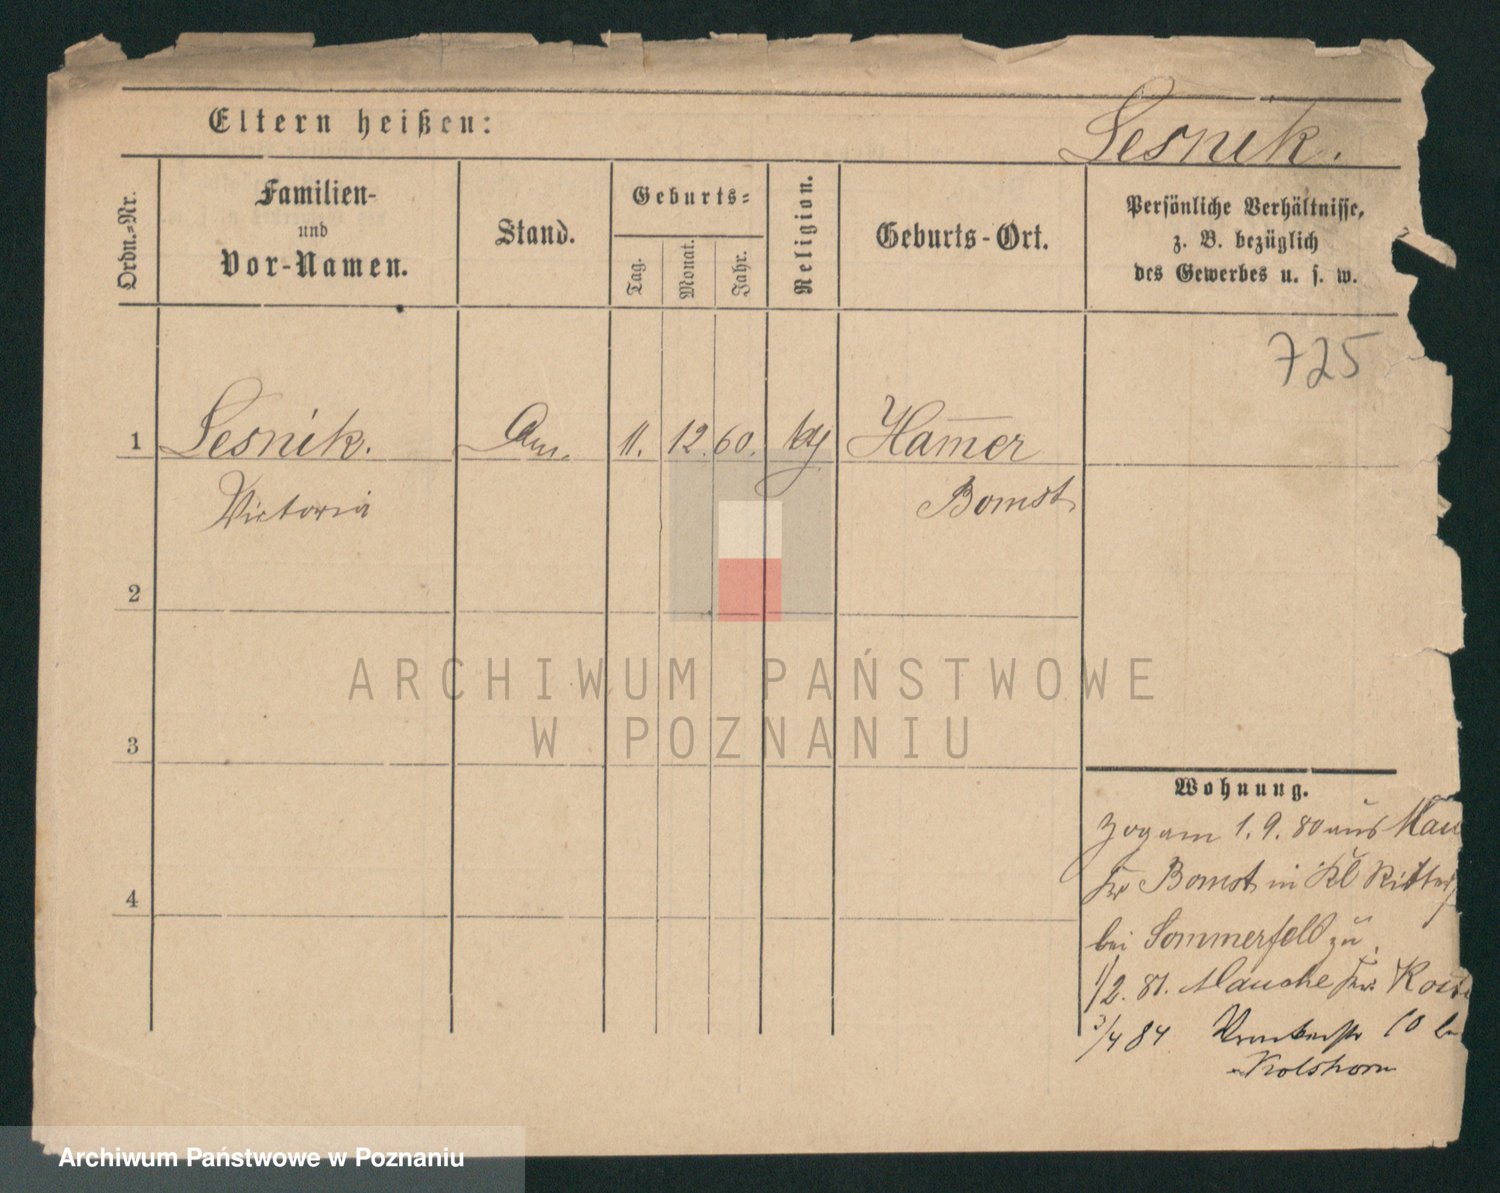 Eltern heißen:
Lesnik.
Ordn.-Nr.
Familien-
und
Vor-Namen.
Stand.
Geburts-
Tag.
Monat.
Jahr.
Religion.
Geburts-Ort.
Persönliche Verhältnisse,
z. B. bezüglich
des Gewerbes u. s. w.
725
1 Lesnik. 11. 12. 60. Ham̄er
Victoria Bomst
2
3
4
ARCHIWUM PAŃSTWOWE
W POZNANIU
Wohnung.
Zog am 1. 9. 80 aus Mau
Kr Bomst in Kl Ritter
bei Sommerfeld zu
1/2. 81. Mauche Kr. Kost
3/4 84 10 bei
Kolshorn
Archiwum Państwowe w Poznaniu